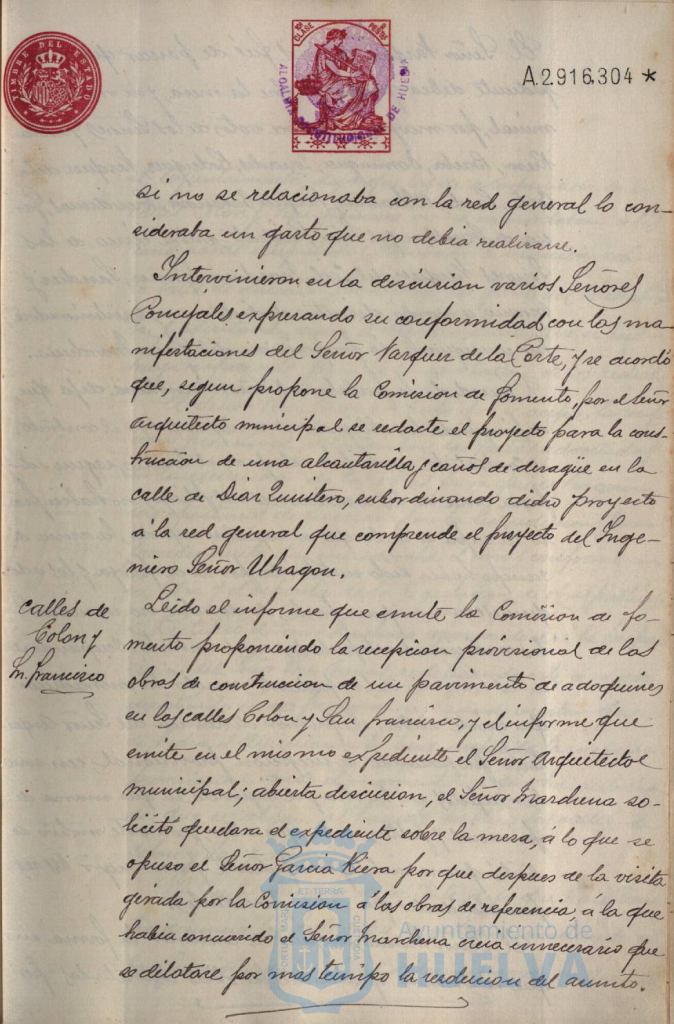 TIMBRE DEL ESTADO
10ª CLASE
PESETAS
ALCALDIA CONSTITUCIONAL DE HUELVA
A.2.916.304 *
si no se relacionaba con la red general lo con-
sideraba un gasto que no debia realizarse.
Intervinieron en la discusion varios Señores
Concejales expresando su conformidad con las ma
nifestaciones del Señor Vazquez de la Corte, y se acordó
que, segun propone la Comision de fomento, por el Señor
Arquitecto municipal se redacte el proyecto para la cons-
truccion de una alcantarilla y caños de desagüe en la
calle de Diaz Quintero, subordinando dicho proyecto
á la red general que comprende el proyecto del Inge-
niero Señor Uhagon.
calles de
Colon y
Sn. francisco
Leido el informe que emite la Comision de fo-
mento proponiendo la recepcion provisional de las
obras de construccion de un pavimento de adoquines
en las calles Colon y San francisco, y el informe que
emite en el mismo expediente el Señor Arquitecto
municipal; abierta discusion, el Señor Marchena so-
licitó quedara el expediente sobre la mesa, á lo que se
opuso el Señor Garcia Riera por que despues de la visita
girada por la Comision á las obras de referencia, á la que
habia concurrido el Señor Marchena creia innecesario que
se dilatase por mas tiempo la resolucion del asunto.
Ayuntamiento de
HUELVA